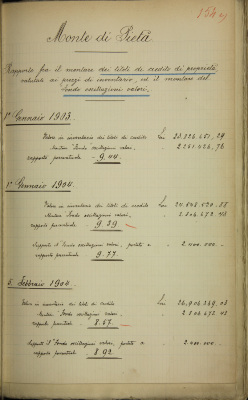 154
Monte di Pietà
Rapporto fra il montare dei titoli di credito di proprietà,
valutati ai prezzi di inventario, ed il montare del
fondo oscillazioni valori.
1° Gennaio 1903.
Valore in inventario dei titoli di credito Lire
Montare Fondo oscillazioni valori,
rapporto percentuale - 9,44. -
1° Gennaio 1904.
Valore in inventario dei titoli di credito Lire
Montare Fondo oscillazioni valori,
rapporto percentuale - 9.39
Supposto il Fondo oscillazioni valori, portato a " 2.400.000. -
rapporto percentuale - 9.77. -
5. Febbraio 1904.
Valore in inventario dei titoli di credito Lire 26.906.369,03
Montare Fondo oscillazioni valori,
rapporto percentuale - 8.67. -
Supposto il Fondo oscillazioni valori, portato a " 2.400.000. -
rapporto percentuale - 8.92. -